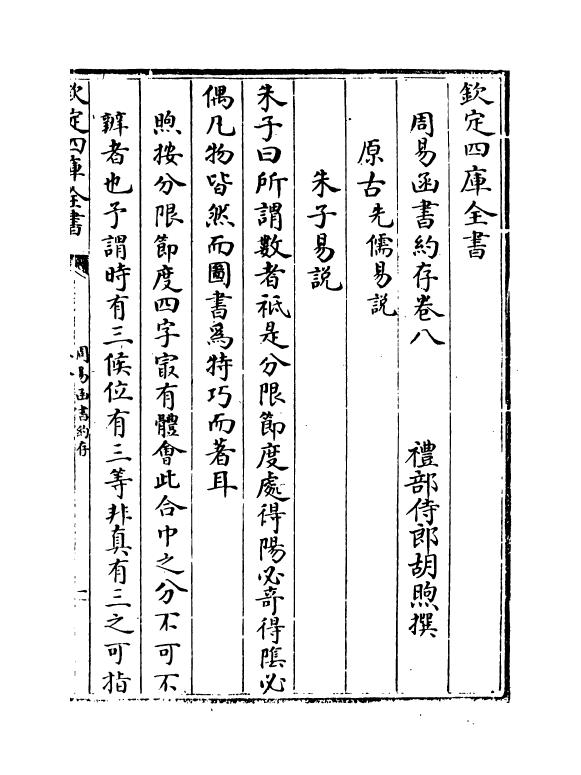 欽定四庫全書
周易函書約存卷八
禮部侍郎胡煦撰
原古先儒易説
朱子易説
朱子曰所謂數者祗是分限節度處得陽必竒得隂必
偶凡物皆然而圖書爲特巧而著耳
煦按分限節度四字㝡有體會此合巾之分不可不
辨者也予謂時有三候位有三等非真有三之可指
欽定四庫全書
周易函書約存